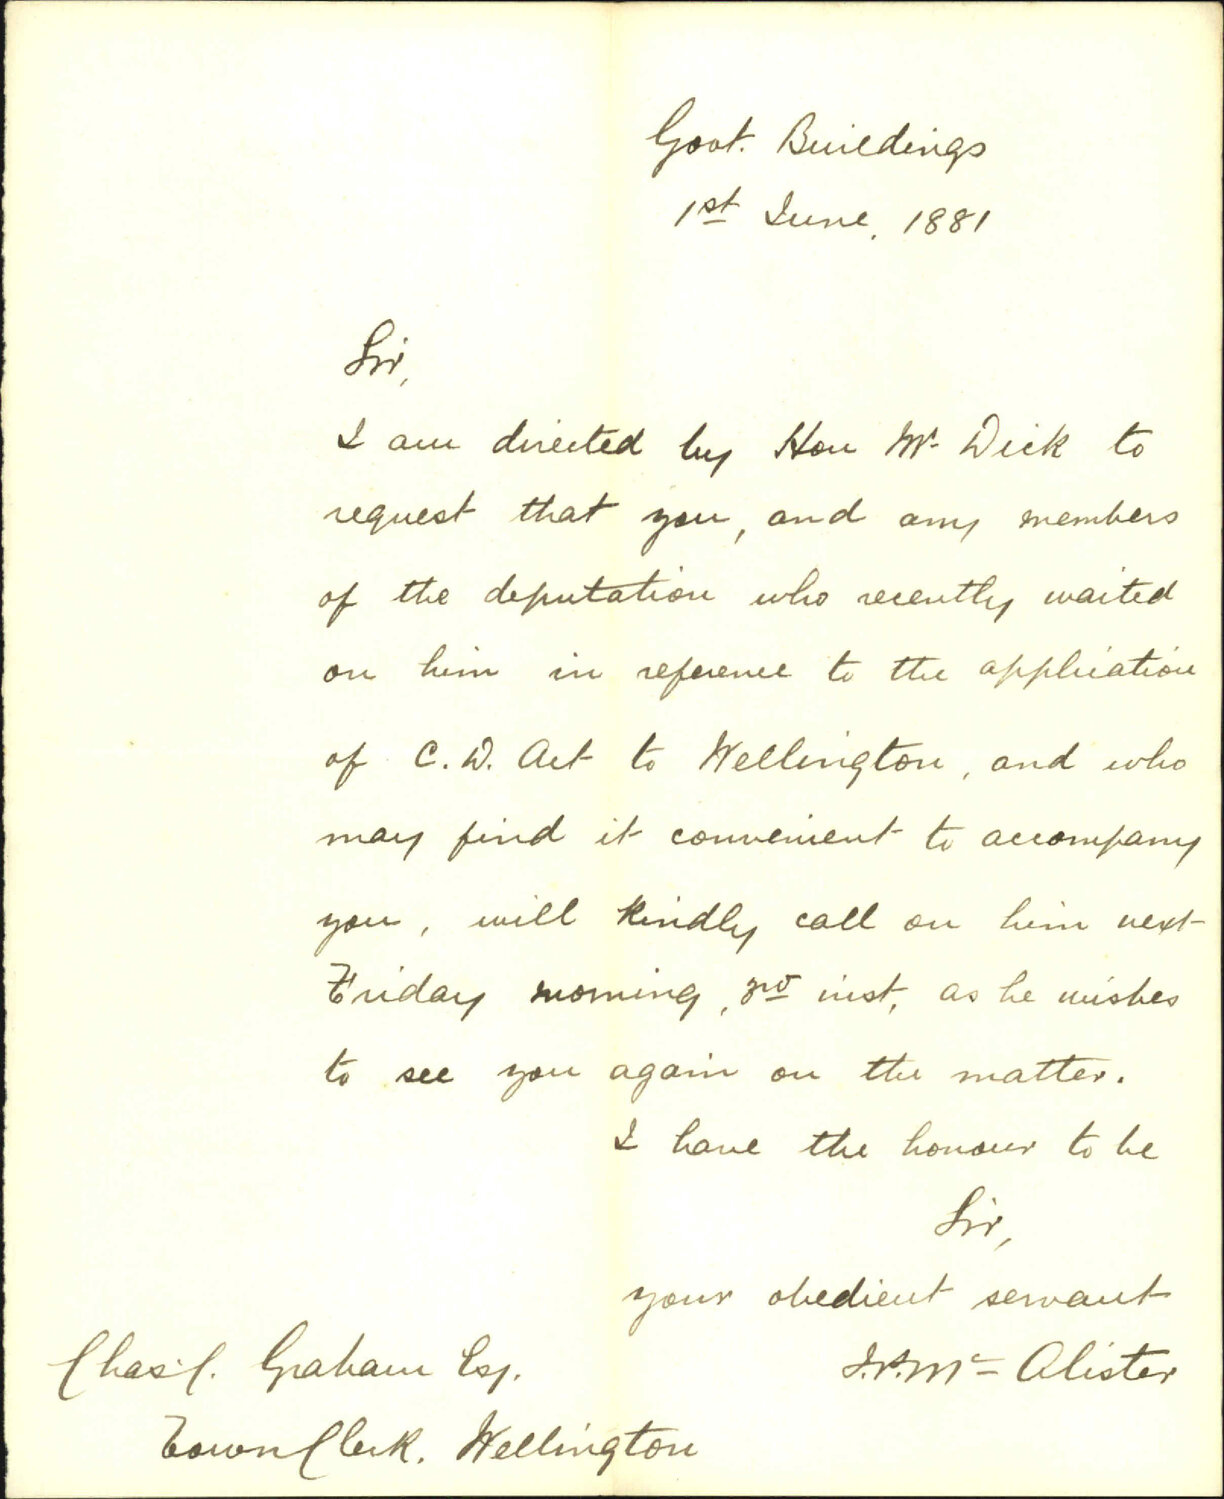 Govt. Buildings
1st June. 1881
Sir,
I am directed by Hon Mr. Dick to
request that you, and any members
of the deputation who recently waited
on him in reference to the application
of C.D. Act to Wellington, and who
may find it convenient to accompany
you, will kindly call on him next
Friday morning, 3rd inst, as he wishes
to see you again on the matter.
I have the honour to be
Sir,
your obedient servant
Mc Alister
Chas. C. Graham Esq.
Town Clerk. Wellington